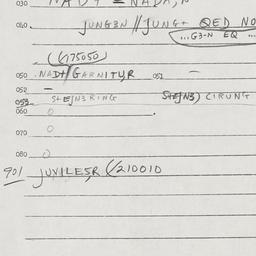 030 NADT = NADA,N
040. JUNG3N // JUNG+ QED NO
...G3-N EQ ...
(6175050)
050 .NADT/GARNITUR 051 —
052 —
053 STEJN3RING STEJN3) CIRUNG
060 0
070 0
080 0
901 JUVILESR (/210010